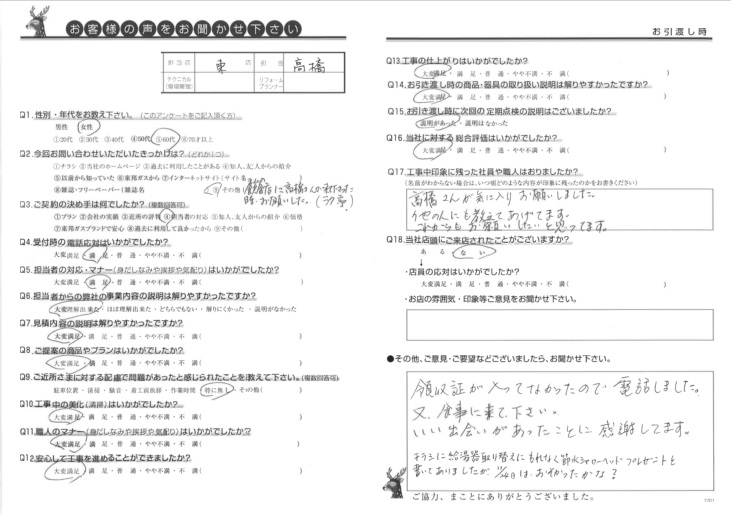 お客様の声をお聞かせ下さい
担当店 東店 担当 高橋
テクニカル(現場管理) リフォームプランナー
Q1.性別・年代をお教え下さい。(このアンケートをご記入頂く方)
男性 女性
①20代 ②30代 ③40代 ④50代 ⑤60代 ⑥70才以上
Q2.今回お問い合わせいただいたきっかけは?(どれか1つ)
①チラシ ②当社のホームページ ③過去に利用したことがある ④知人、友人からの紹介
⑤以前から知っていた ⑥東邦ガスから ⑦インターネットサイト(サイト名
⑧雑誌・フリーペーパー(雑誌名 ⑨その他(
時、お願いした。
Q3.ご契約の決め手は何でしたか?(複数回答可)
①プラン ②会社の実績 ③近所の評判 ④担当者の対応 ⑤知人、友人からの紹介 ⑥価格
⑦東邦ガスブランドで安心 ⑧過去に利用して良かったから ⑨その他( )
Q4.受付時の電話応対はいかがでしたか?
大変満足・満足・普通・やや不満・不満( )
Q5.担当者の対応・マナー(身だしなみや挨拶や気配り)はいかがでしたか?
大変満足・満足・普通・やや不満・不満( )
Q6.担当者からの弊社の事業内容の説明は解りやすかったですか?
大変理解出来た・ほぼ理解出来た・どちらでもない・解りにくかった・説明がなかった
Q7.見積内容の説明は解りやすかったですか?
大変満足・満足・普通・やや不満・不満( )
Q8.ご提案の商品やプランはいかがでしたか?
大変満足・満足・普通・やや不満・不満( )
Q9.ご近所さまに対する配慮で問題があったと感じられたことを教えて下さい。(複数回答可)
駐車位置・挨拶・騒音・着工前挨拶・作業時間・特に無し・その他( )
Q10.工事中の美化(清掃)はいかがでしたか?
大変満足・満足・普通・やや不満・不満( )
Q11.職人のマナー(身だしなみや挨拶や気配り)はいかがでしたか?
大変満足・満足・普通・やや不満・不満( )
Q12.安心して工事を進めることができましたか?
大変満足・満足・普通・やや不満・不満( )
お引渡し時
Q13.工事の仕上がりはいかがでしたか?
大変満足・満足・普通・やや不満・不満( )
Q14.お引き渡し時の商品・器具の取り扱い説明は解りやすかったですか?
大変満足・満足・普通・やや不満・不満( )
Q15.お引き渡し時に次回の定期点検の説明はございましたか?
説明があった・説明はなかった
Q16.当社に対する総合評価はいかがでしたか?
大変満足・満足・普通・やや不満・不満( )
Q17.工事中印象に残った社員や職人はおりましたか?
(名前がわからない場合は、いつ頃どのような内容が印象に残ったのかをお書きください)
高橋さんが気に入り お願いしました。
他の人にも教えてあげてます。
これからも お願いしたいと思ってます。
Q18.当社店頭にご来店されたことがございますか?
ある・ない
↓
・店員の応対はいかがでしたか?
大変満足・満足・普通・やや不満・不満( )
・お店の雰囲気・印象等ご意見をお聞かせ下さい。
●その他、ご意見・ご要望などございましたら、お聞かせ下さい。
領収証が入ってなかったので電話しました。
又、食事に来て下さい。
いい出会いがあったことに感謝してます。
チラシに給湯器取り替えにもれなく節水シャワーヘッドプレゼントと
書いてありましたが 日は、おそかったかな?
ご協力、まことにありがとうございました。